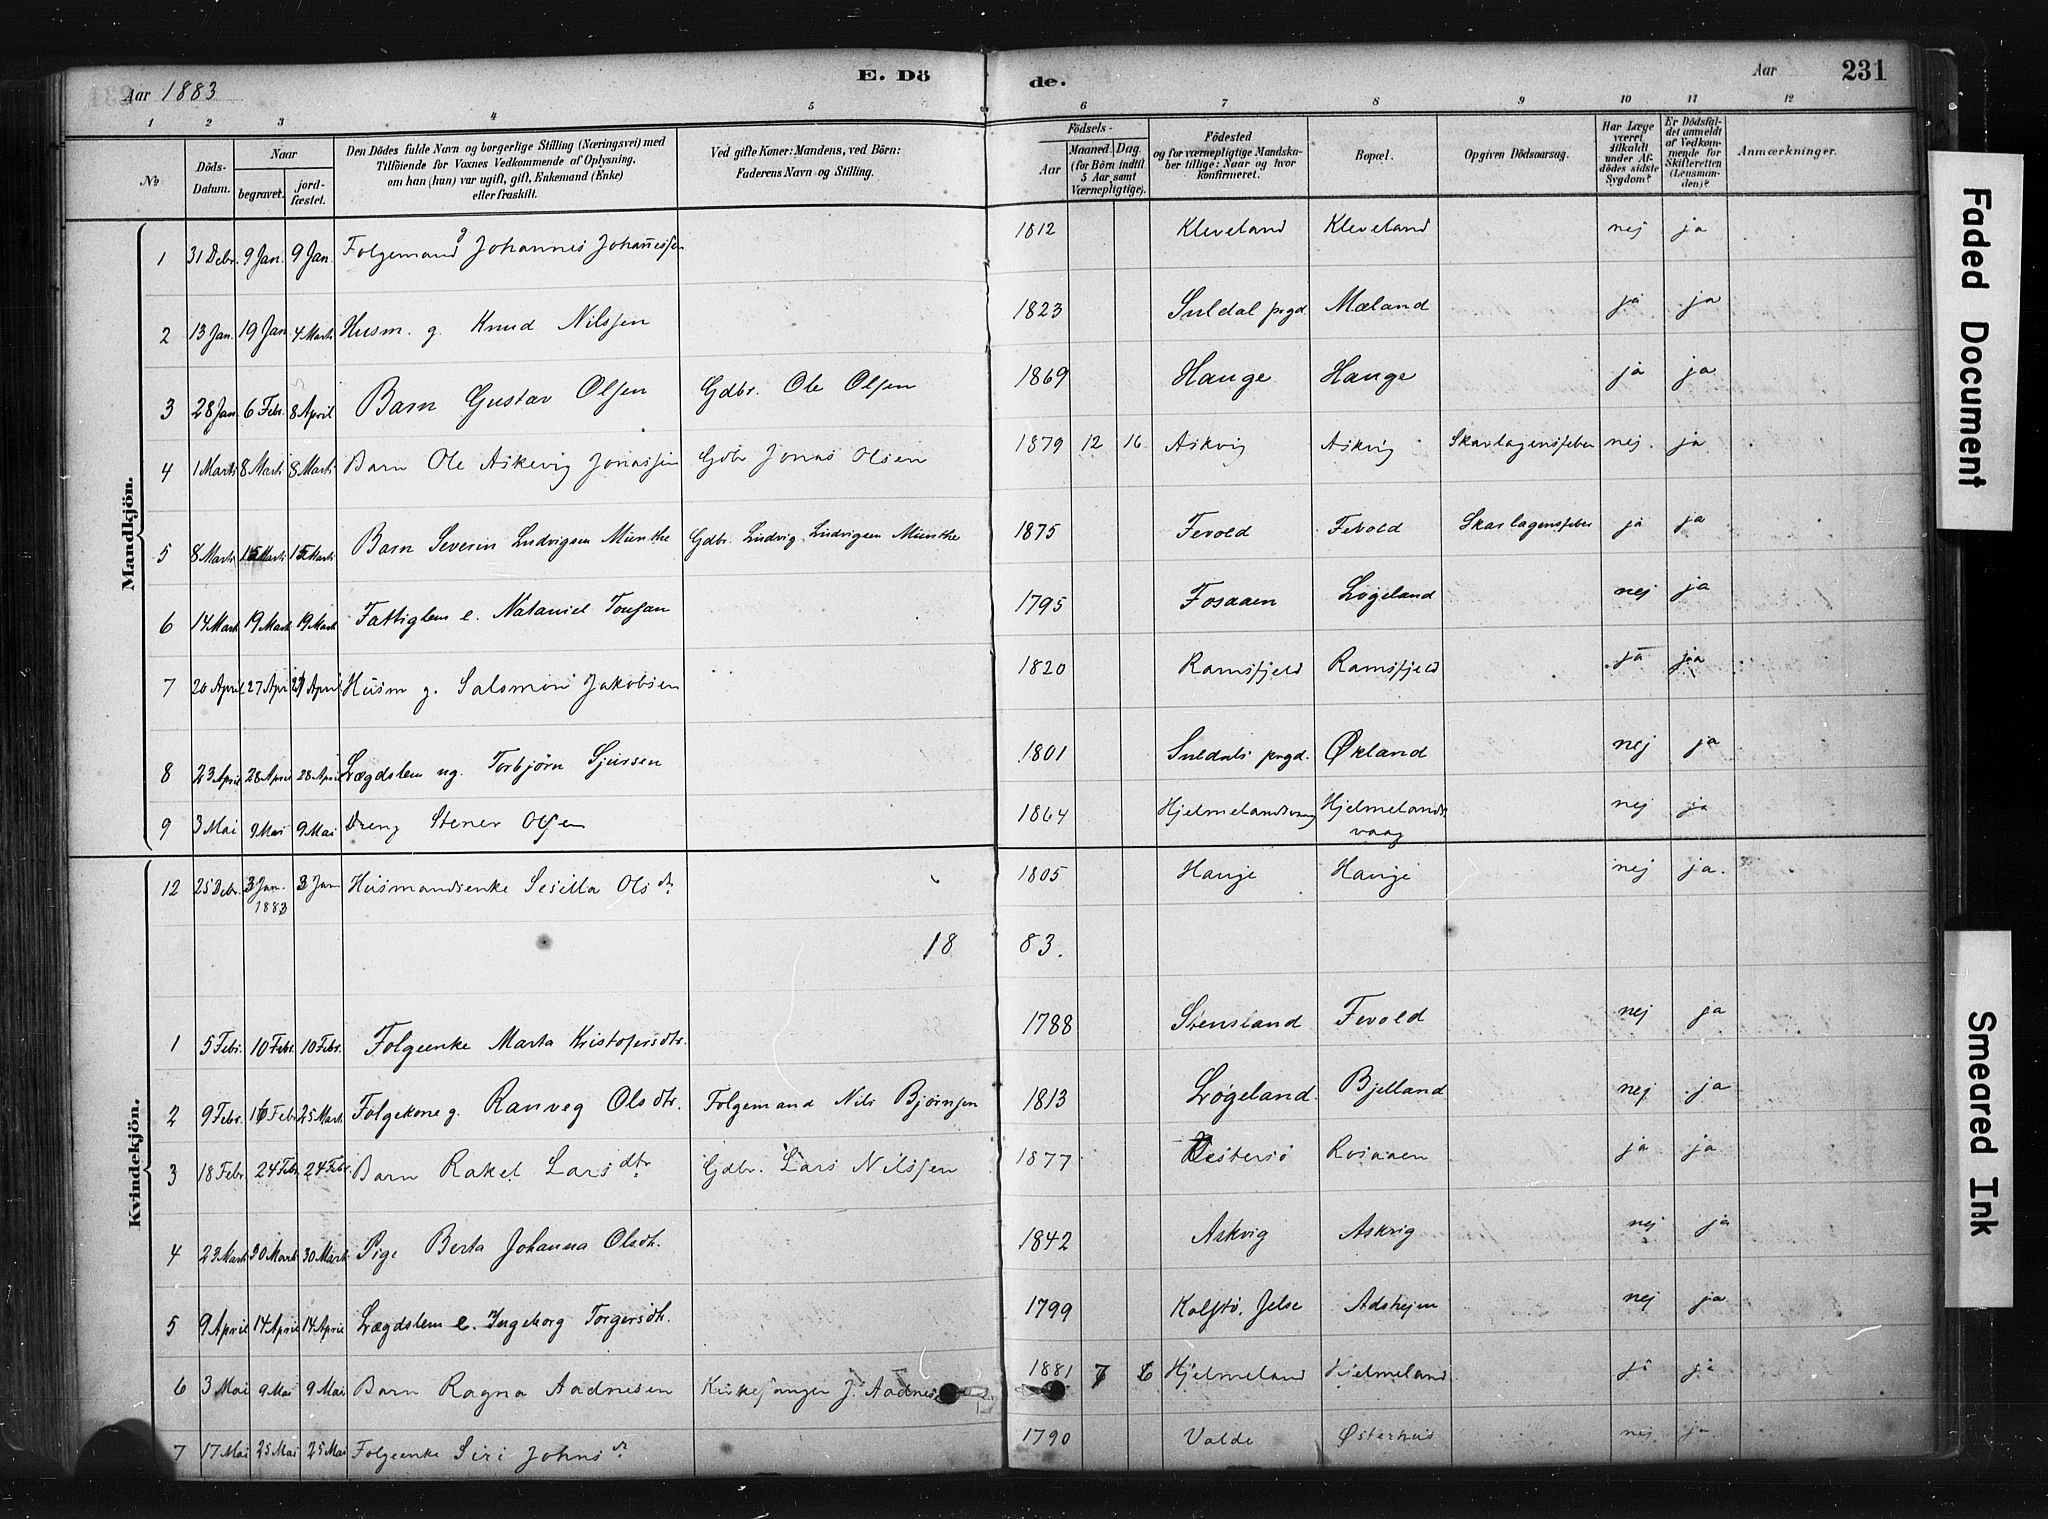 Aar 1883 E. Dö de. Aar 231
1 2 3 4 5 6 7 8 9 10 11 12
No Döds-Datum. Naar begravet. jord-fæstet. Den Dödes fulde Navn og borgerlige Stilling (Næringsvei) med Tilföiende for Voxnes Vedkommende af Oplysning, om han (hun) var ugift, gift, Enkemand (Enke) eller fraskilt. Ved gifte Koner: Mandens, ved Börn: Faderens Navn og Stilling. Födsels- Aar Maaned. Dag. (for Börn indtil 5 Aar samt Værnepligtige). Födested og for værnepligtige Mandskaber tillige: Naar og hvor konfirmeret. Bopæl. Opgiven Dödsaarsag. Har Læge været tilkaldt under Afdödes sidste Sygdom? Er Dödsfaldet anmeldt af Vedkommende for Skifteretten (Lensmanden)? Anmærkninger.
Mandkjön.
1 31 Debr. 9 Jan. 9 Jan. Folgemand g Johannes Johannessen 1812 Kleveland Kleveland nej ja
2 13 Jan. 19 Jan 4 Marts Husm. g. Knud Nilssen 1823 Suldal prgd. Mæland ja ja
3 28 Jan. 6 Febr. 8 April Barn Gustav Olsen Gdbr. Ole Olsen 1869 Hauge Hauge ja ja
4 1 Marts 8 Marts 8 Marts Barn Ole Askevig Jonassen Gdbr Jonas Olsen 1879 12 16 Askvig Askvig Skarlagensfeber nej. ja
5 8 Marts 15 Marts 15 Marts Barn Severin Ludvigsen Munthe Gdbr. Ludvig Ludvigsen Munthe 1875 Fevold Fevold Skarlagensfeber ja ja
6 14 Marts 19 Marts 19 Marts Fattiglem e. Nataniel 1795 Fosaaen Løgeland nej ja
7 20 April 27 April 27 April Husm g. Salomon Jakobsen 1820 Ramsfjeld Ramsfjeld ja ja
8 23 April 28 April 28 April Lægdslem ug. Torbjørn Sjursen 1801 Suldals prgd. Økland nej ja
9 3 Mai 9 Mai 9 Mai Dreng Stener Olsen 1864 Hjelmelandsvaag Hjelmelands vaag nej ja
Kvindekjön.
12 25 Debr. 3 Jan. 1883 3 Jan Husmandsenke Sesilla Olsdr. 1805 Hauge Hauge nej ja.
18 83.
1 5 Febr. 10 Febr. 10 Febr. Folgeenke Marta Kristofersdtr. 1788 Stensland Fevold nej ja
2 9 Febr. 16 Febr 25 Marts Folgekone g. Ranveg Olsdtr. Folgemand Nils Bjørnsen 1813 Løgeland. Bjelland nej ja
3 18 Febr 24 Febr 24 Febr. Barn Rakel Larsdtr. Gdbr. Lars Nilssen 1877 Vestersø ja ja
4 23 Marts 30 Marts 30 Marts Pige Berta Johanna Olsdtr. 1842 Askvig Askvig nej ja
5 9 April 14 April 14 April Lægdslem e. Ingeborg Torgersdtr. 1799 Kolstø, Jelse nej ja
6 3 Mai 9 Mai 9 Mai Barn Ragna Aadnesen Kirkesanger J. Aadnes 1881 7 6 Hjelmeland Hjelmeland ja ja
7 17 Mai 25 Mai 25 Mai Folgeenke Siri Johnsdr. 1790 Valde Østerhus nej ja
Faded Document
Smeared Ink